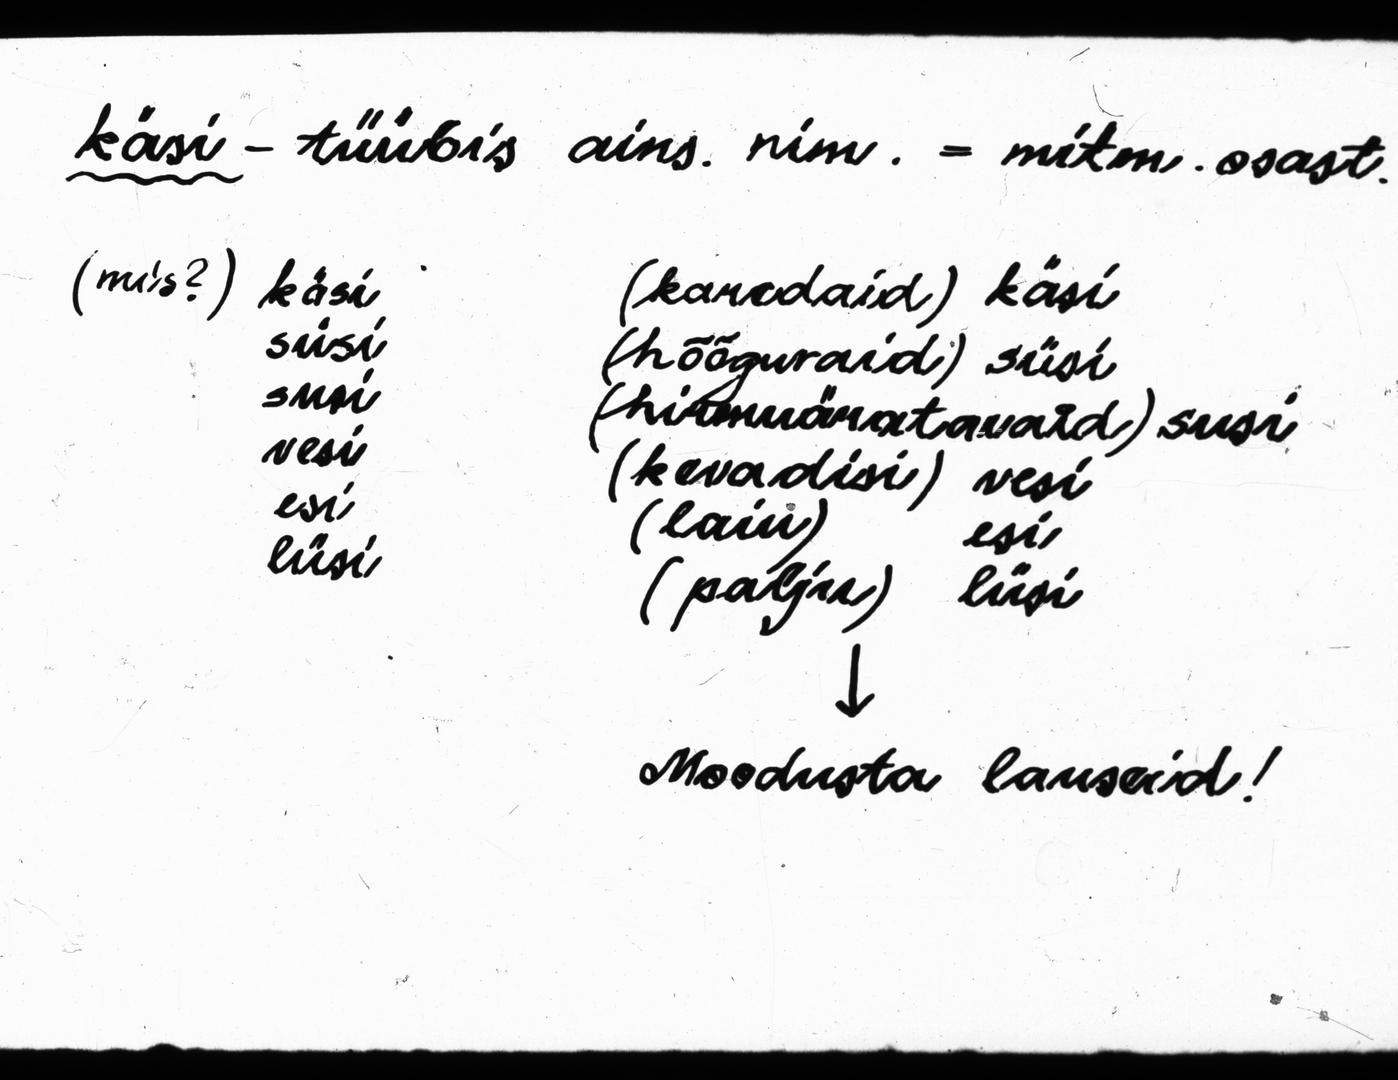 käsi - tüübis ains. nim. = mitm. osast.
(mis?) käsi (karedaid) käsi
süsi (hõõguvaid) süsi
susi (hirmuäratavaid) susi
vesi (kevadisi) vesi
esi (laiu) esi
lüsi (palju) lüsi
↓
Moodusta lauseid!